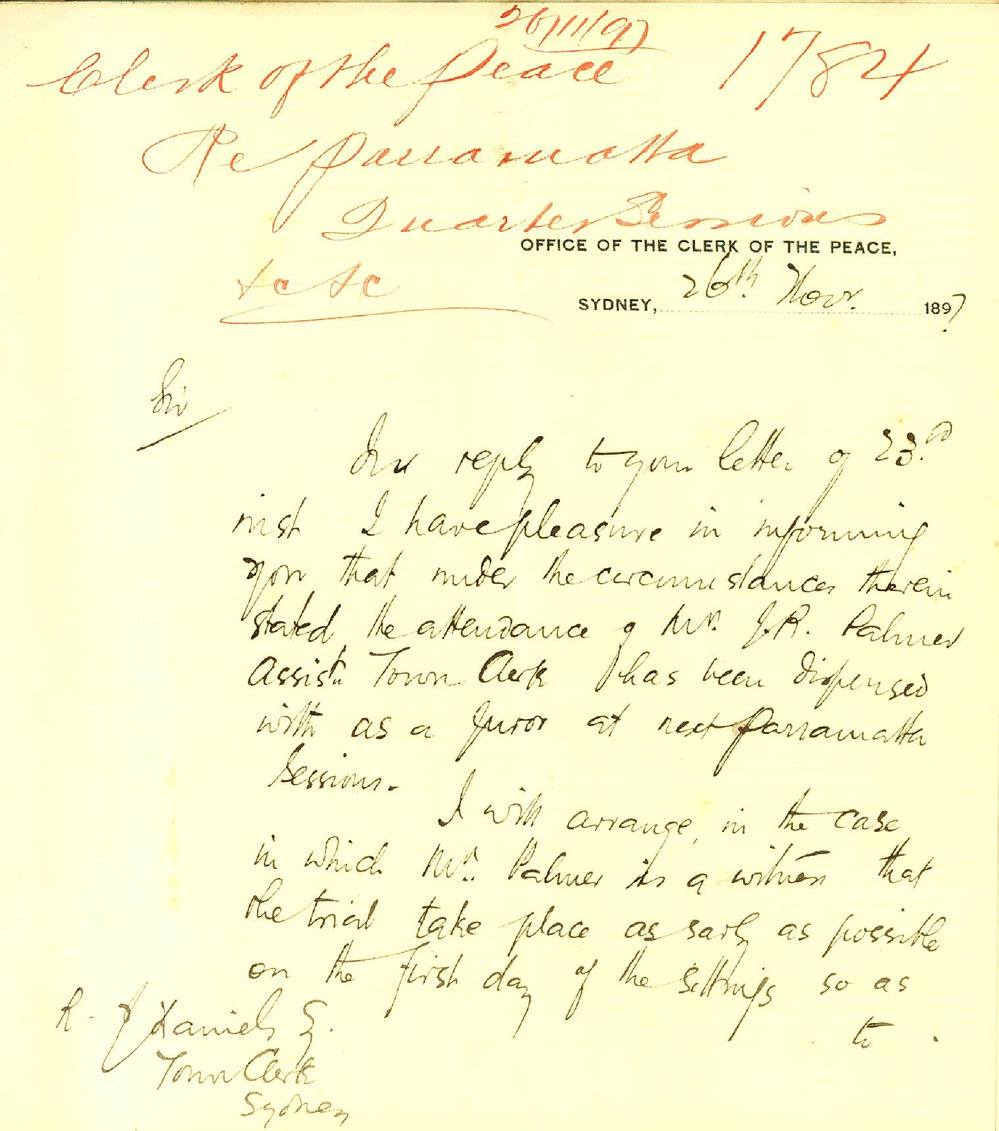 26/11/97
Clerk of the Peace 1784
Re Parramatta
Quarter Sessions
&c &c
OFFICE OF THE CLERK OF THE PEACE,
SYDNEY, 26th. Novr. 1897
Sir
In reply to your letter of 23.rd
inst I have pleasure in informing
you that under the circumstances therein
stated, the attendance of Mr. J.R. Palmer
Assist. Town Clerk has been dispensed
with as a Juror at next Parramatta
Sessions.
I will arrange, in the case
in which Mr. Palmer is a witness that
the trial take place as early as possible
on the first day of the sittings so as
to
R. Daniels
Town Clerk
Sydney